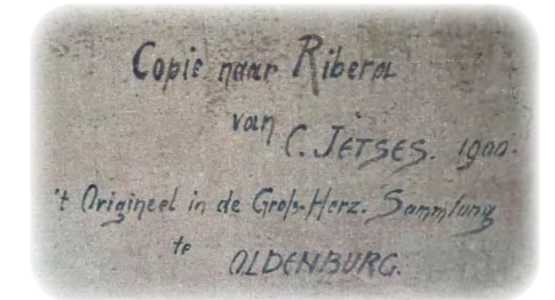 Copie naar Ribera
van C. JETSES. 1900.
't Origineel in de Groß-Herz. Sammlung
te OLDENBURG.